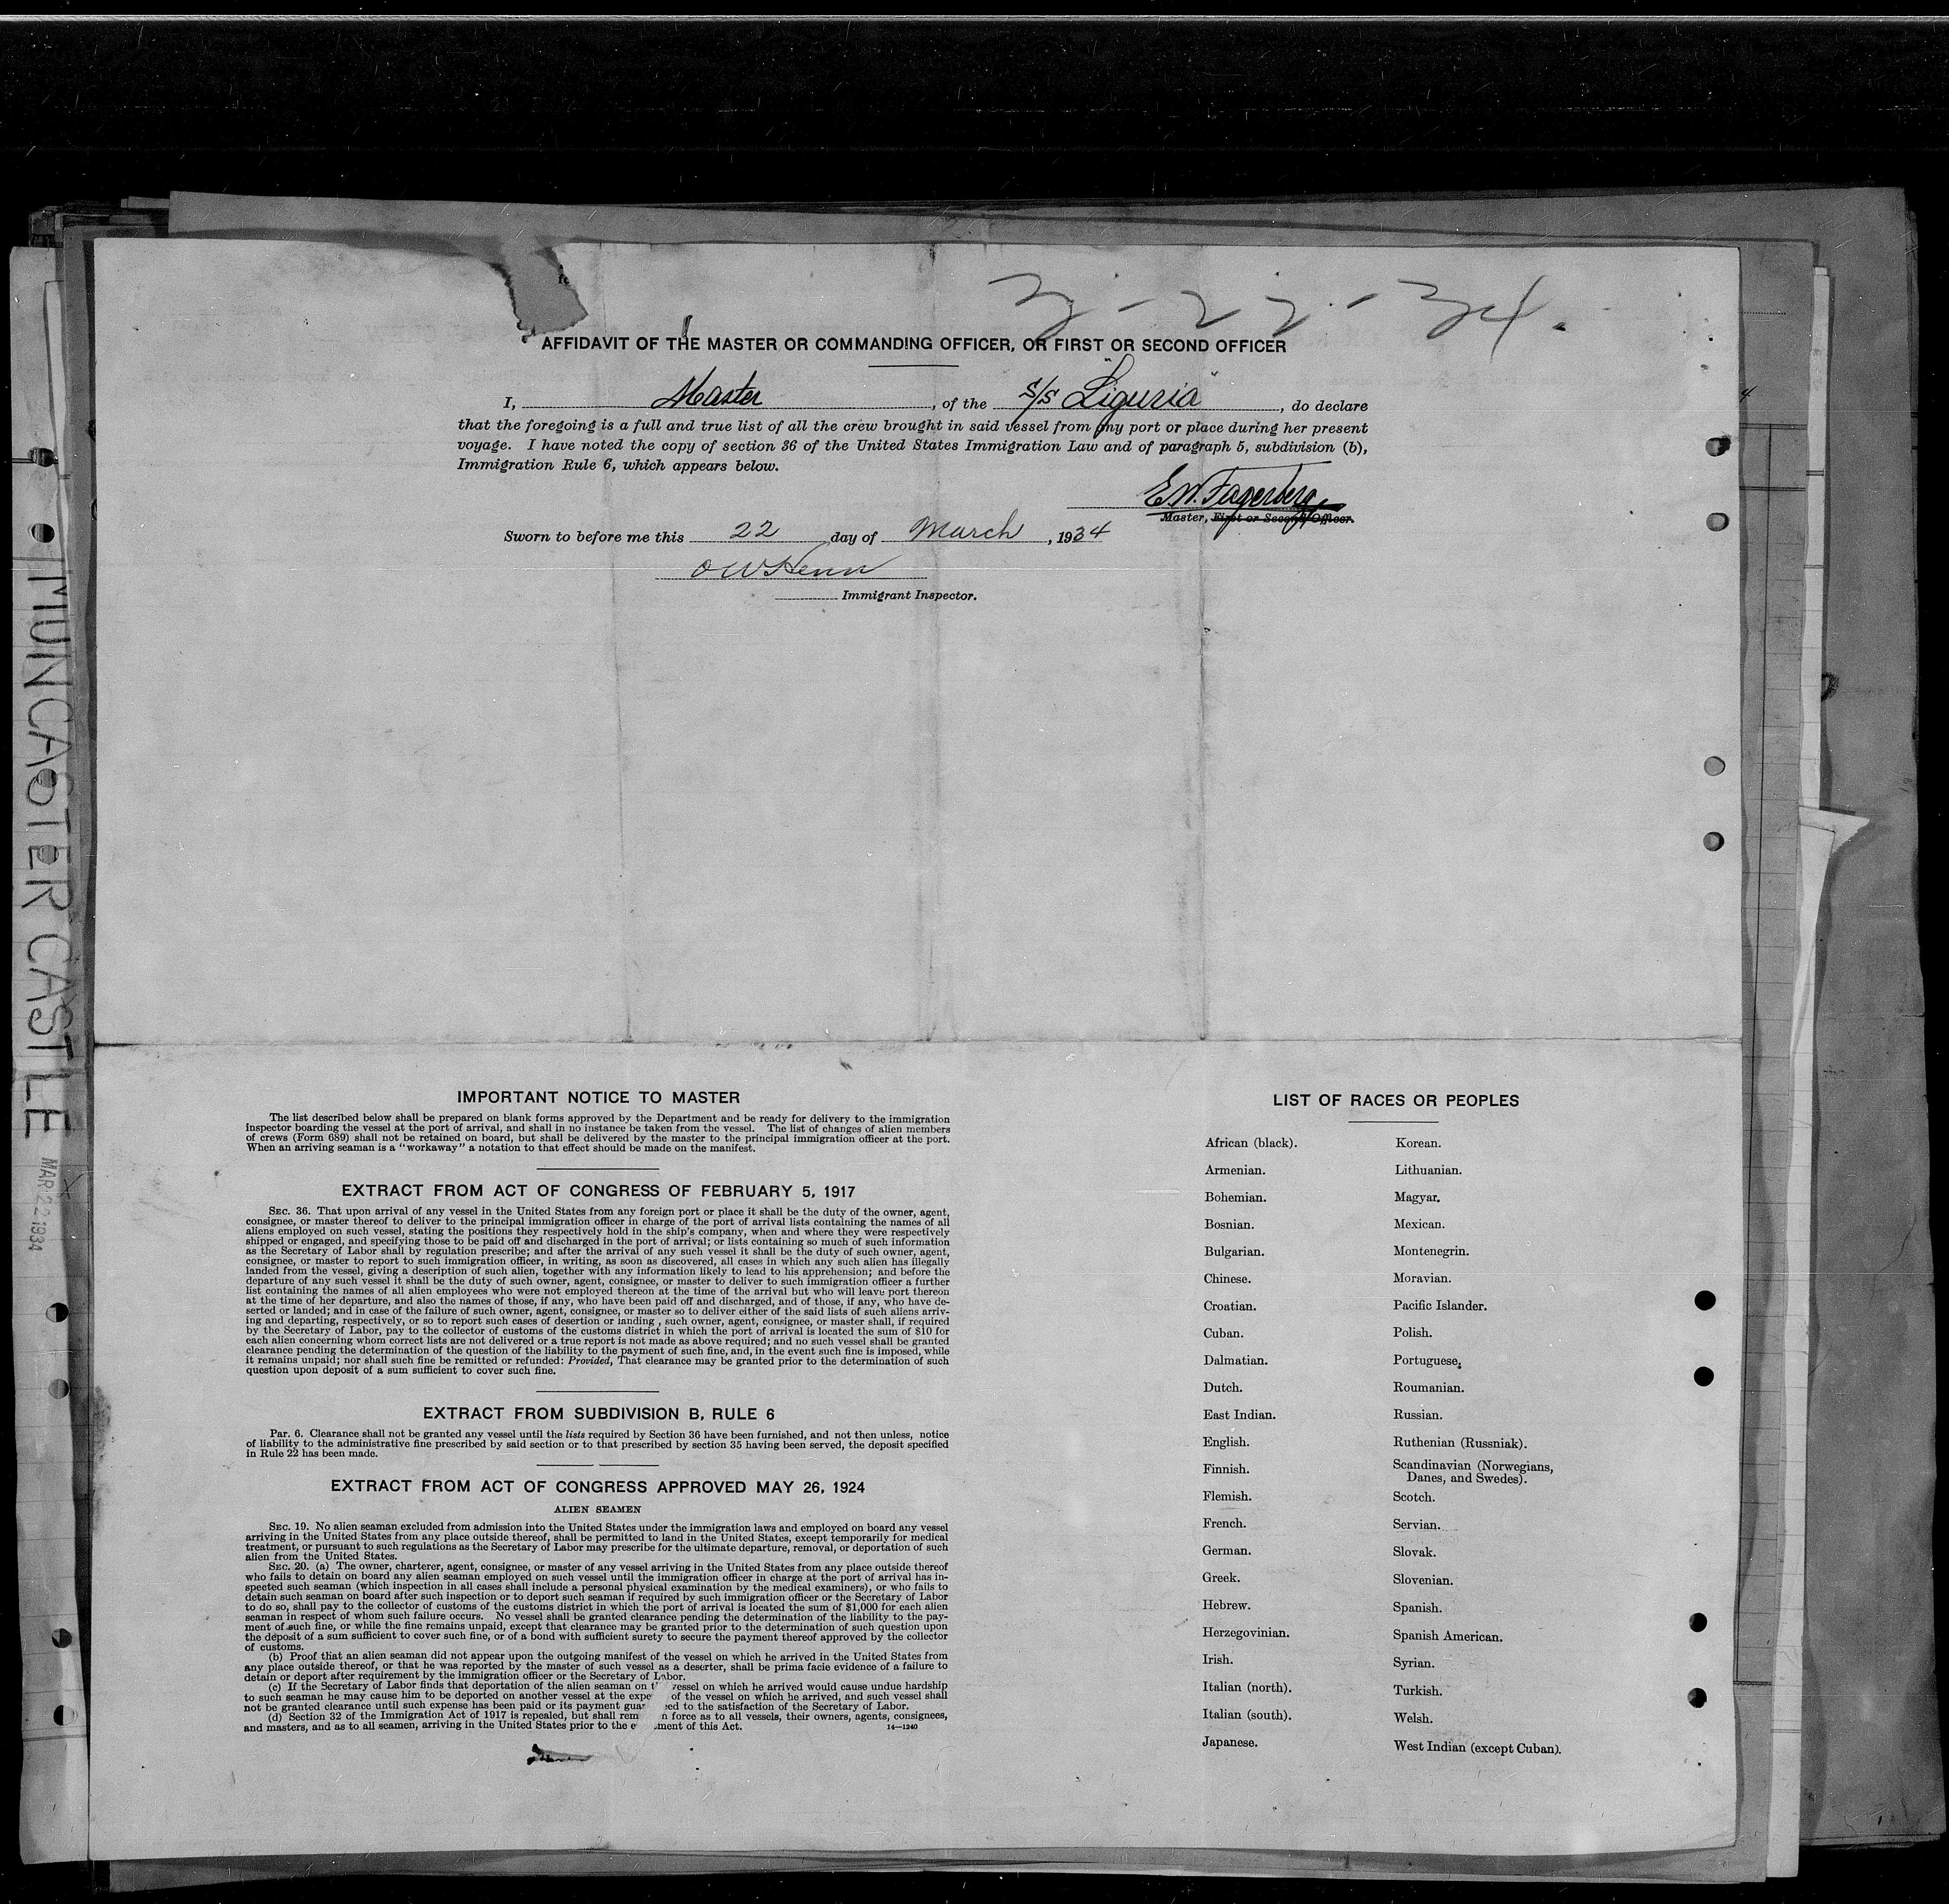 3-22-34.
AFFIDAVIT OF THE MASTER OR COMMANDING OFFICER, OR FIRST OR SECOND OFFICER
I, Master, of the S/S "Liguria", do declare
that the foregoing is a full and true list of all the crew brought in said vessel from any port or place during her present
voyage. I have noted the copy of section 36 of the United States Immigration Law and of paragraph 5, subdivision (b),
Immigration Rule 6, which appears below.
E.W. Fagerberg
Master, First or Second Officer.
Sworn to before me this 22 day of March, 1934
O W Henn
Immigrant Inspector.
MUNCASTER CASTLE
MAR 22 1934
IMPORTANT NOTICE TO MASTER
The list described below shall be prepared on blank forms approved by the Department and be ready for delivery to the immigration
inspector boarding the vessel at the port of arrival, and shall in no instance be taken from the vessel. The list of changes of alien members
of crews (Form 689) shall not be retained on board, but shall be delivered by the master to the principal immigration officer at the port.
When an arriving seaman is a "workaway" a notation to that effect should be made on the manifest.
EXTRACT FROM ACT OF CONGRESS OF FEBRUARY 5, 1917
SEC. 36. That upon arrival of any vessel in the United States from any foreign port or place it shall be the duty of the owner, agent,
consignee, or master thereof to deliver to the principal immigration officer in charge of the port of arrival lists containing the names of all
aliens employed on such vessel, stating the positions they respectively hold in the ship's company, when and where they were respectively
shipped or engaged, and specifying those to be paid off and discharged in the port of arrival; or lists containing so much of such information
as the Secretary of Labor shall by regulation prescribe; and after the arrival of any such vessel it shall be the duty of such owner, agent,
consignee, or master to report to such immigration officer, in writing, as soon as discovered, all cases in which any such alien has illegally
landed from the vessel, giving a description of such alien, together with any information likely to lead to his apprehension; and before the
departure of any such vessel it shall be the duty of such owner, agent, consignee, or master to deliver to such immigration officer a further
list containing the names of all alien employees who were not employed thereon at the time of the arrival but who will leave port thereon
at the time of her departure, and also the names of those, if any, who have been paid off and discharged, and of those, if any, who have de-
serted or landed; and in case of the failure of such owner, agent, consignee, or master so to deliver either of the said lists of such aliens arriv-
ing and departing, respectively, or so to report such cases of desertion or landing , such owner, agent, consignee, or master shall, if required
by the Secretary of Labor, pay to the collector of customs of the customs district in which the port of arrival is located the sum of $10 for
each alien concerning whom correct lists are not delivered or a true report is not made as above required; and no such vessel shall be granted
clearance pending the determination of the question of the liability to the payment of such fine, and, in the event such fine is imposed, while
it remains unpaid; nor shall such fine be remitted or refunded: Provided, That clearance may be granted prior to the determination of such
question upon deposit of a sum sufficient to cover such fine.
EXTRACT FROM SUBDIVISION B, RULE 6
Par. 6. Clearance shall not be granted any vessel until the lists required by Section 36 have been furnished, and not then unless, notice
of liability to the administrative fine prescribed by said section or to that prescribed by section 35 having been served, the deposit specified
in Rule 22 has been made.
EXTRACT FROM ACT OF CONGRESS APPROVED MAY 26, 1924
ALIEN SEAMEN
SEC. 19. No alien seaman excluded from admission into the United States under the immigration laws and employed on board any vessel
arriving in the United States from any place outside thereof, shall be permitted to land in the United States, except temporarily for medical
treatment, or pursuant to such regulations as the Secretary of Labor may prescribe for the ultimate departure, removal, or deportation of such
alien from the United States.
SEC. 20. (a) The owner, charterer, agent, consignee, or master of any vessel arriving in the United States from any place outside thereof
who fails to detain on board any alien seaman employed on such vessel until the immigration officer in charge at the port of arrival has in-
spected such seaman (which inspection in all cases shall include a personal physical examination by the medical examiners), or who fails to
detain such seaman on board after such inspection or to deport such seaman if required by such immigration officer or the Secretary of Labor
to do so, shall pay to the collector of customs of the customs district in which the port of arrival is located the sum of $1,000 for each alien
seaman in respect of whom such failure occurs. No vessel shall be granted clearance pending the determination of the liability to the pay-
ment of such fine, or while the fine remains unpaid, except that clearance may be granted prior to the determination of such question upon
the deposit of a sum sufficient to cover such fine, or of a bond with sufficient surety to secure the payment thereof approved by the collector
of customs.
(b) Proof that an alien seaman did not appear upon the outgoing manifest of the vessel on which he arrived in the United States from
any place outside thereof, or that he was reported by the master of such vessel as a deserter, shall be prima facie evidence of a failure to
detain or deport after requirement by the immigration officer or the Secretary of Labor.
(c) If the Secretary of Labor finds that deportation of the alien seaman on t vessel on which he arrived would cause undue hardship
to such seaman he may cause him to be deported on another vessel at the expe of the vessel on which he arrived, and such vessel shall
not be granted clearance until such expense has been paid or its payment guar eed to the satisfaction of the Secretary of Labor.
(d) Section 32 of the Immigration Act of 1917 is repealed, but shall rem n force as to all vessels, their owners, agents, consignees,
and masters, and as to all seamen, arriving in the United States prior to the e ment of this Act.
14—1240
LIST OF RACES OR PEOPLES
African (black).
Armenian.
Bohemian.
Bosnian.
Bulgarian.
Chinese.
Croatian.
Cuban.
Dalmatian.
Dutch.
East Indian.
English.
Finnish.
Flemish.
French.
German.
Greek.
Hebrew.
Herzegovinian.
Irish.
Italian (north).
Italian (south).
Japanese.
Korean.
Lithuanian.
Magyar.
Mexican.
Montenegrin.
Moravian.
Pacific Islander.
Polish.
Portuguese.
Roumanian.
Russian.
Ruthenian (Russniak).
Scandinavian (Norwegians,
Danes, and Swedes).
Scotch.
Servian.
Slovak.
Slovenian.
Spanish.
Spanish American.
Syrian.
Turkish.
Welsh.
West Indian (except Cuban).